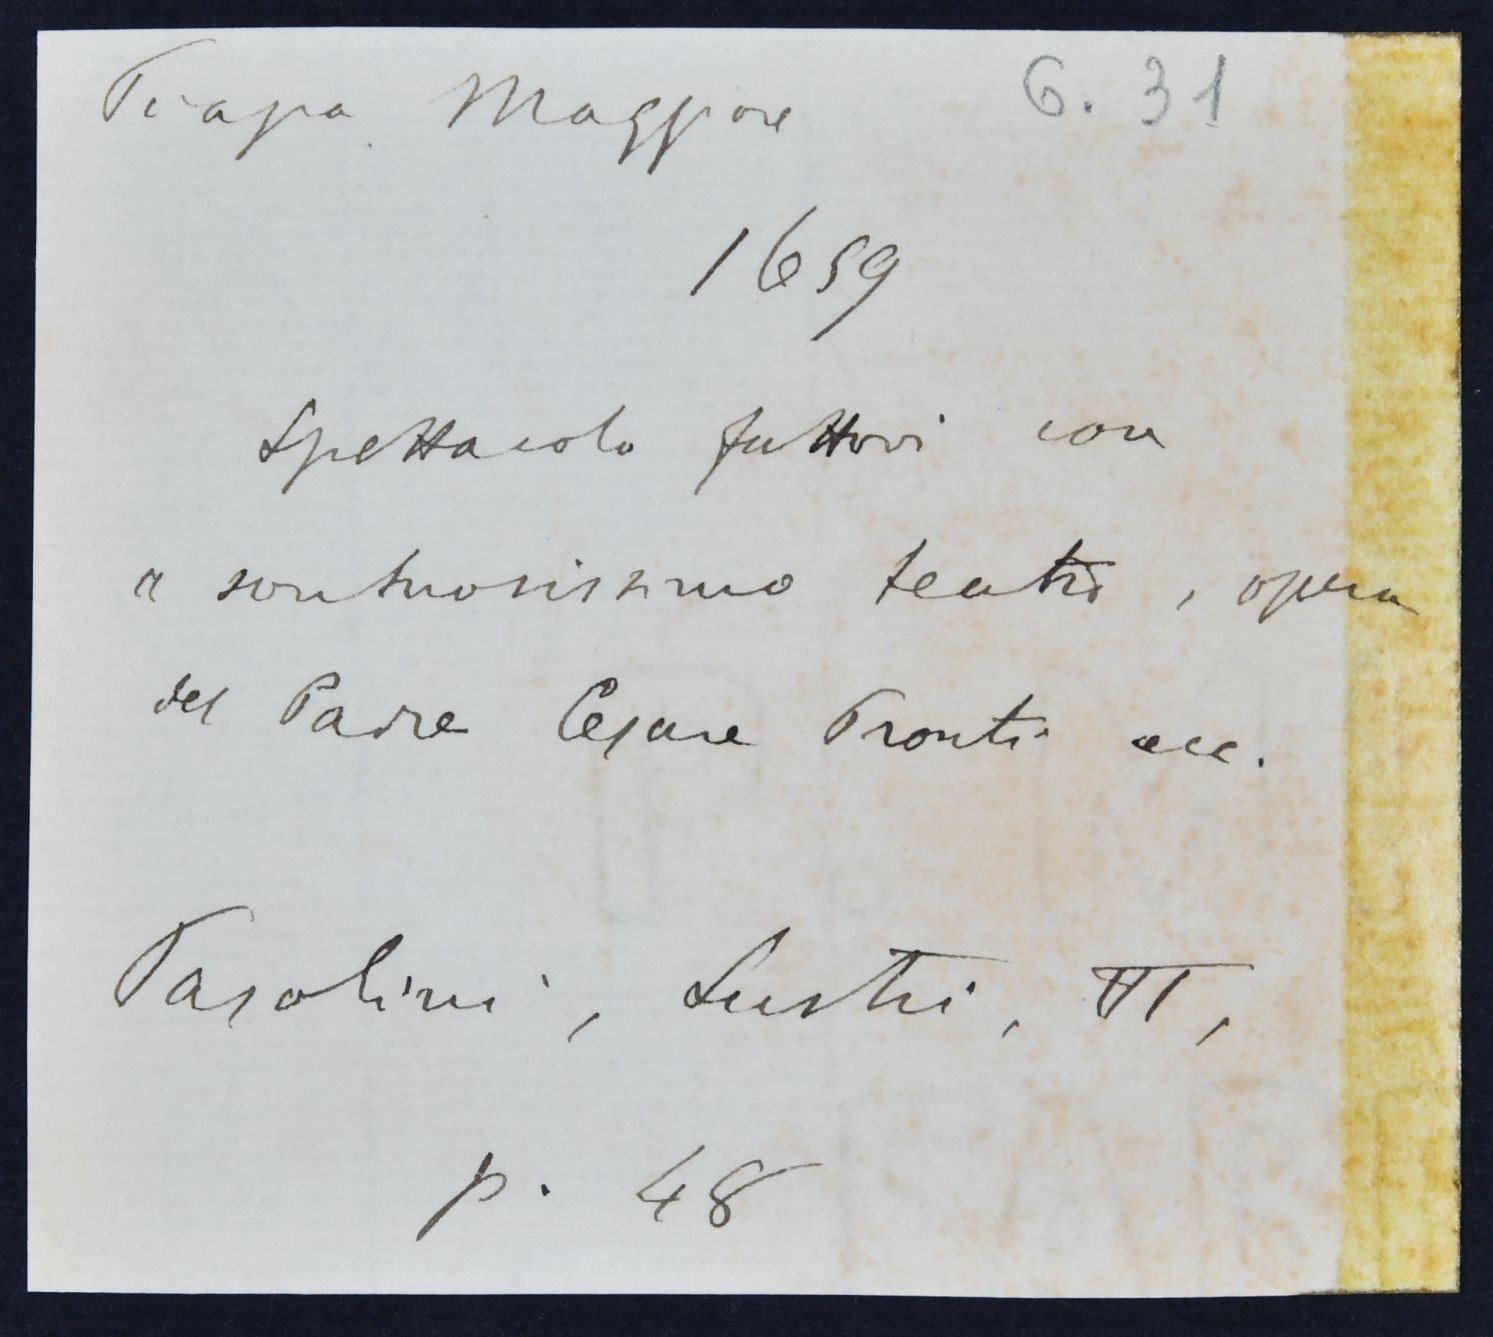 Piazza Maggiore 6.31
1659
Spettacolo fattovi con
" sontuosissimo teatro, opera
del Padre Cesare Pronti ecc.
Pasolini, Lustri, VI,
p. 48